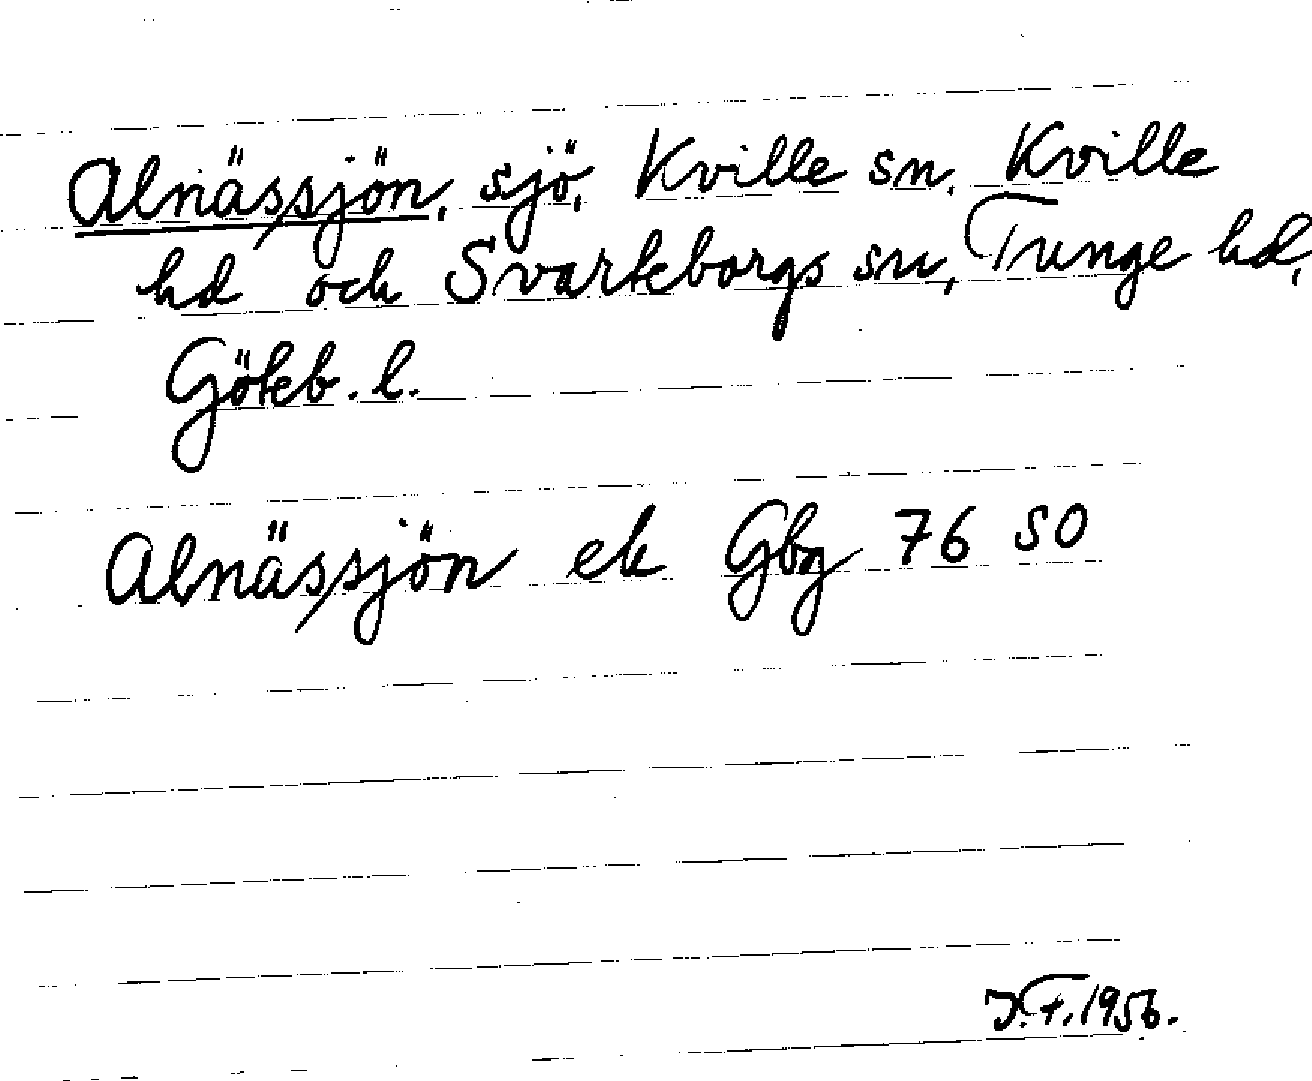 Alnässjön, sjö, Kville sn, Kville
hd och Svarteborgs sn, Tunge hd,
Göteb. l.
Alnässjön ek Gbg 76 SO
J.F. 1956.